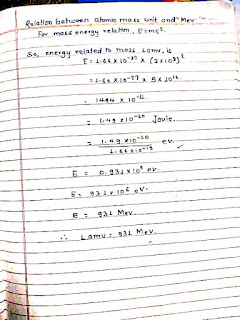 Relation between atomic mass unit and "Mev."
For mass energy relation, E=mc².
So, energy related to mass 1amu, is
E = 1.66 × 10⁻²⁷ × (3×10⁸)²
= 1.66 × 10⁻²⁷ × 9×10¹⁶
= 1494 × 10⁻¹¹
= 1.49 × 10⁻¹⁰ Joule.
= 1.49 ×10⁻¹⁰ / 1.66 ×10⁻¹⁹ ev.
E = 0.931×10⁹ ev.
E = 931× 10⁶ ev.
E = 931 Mev
∴ 1amu = 931 Mev.